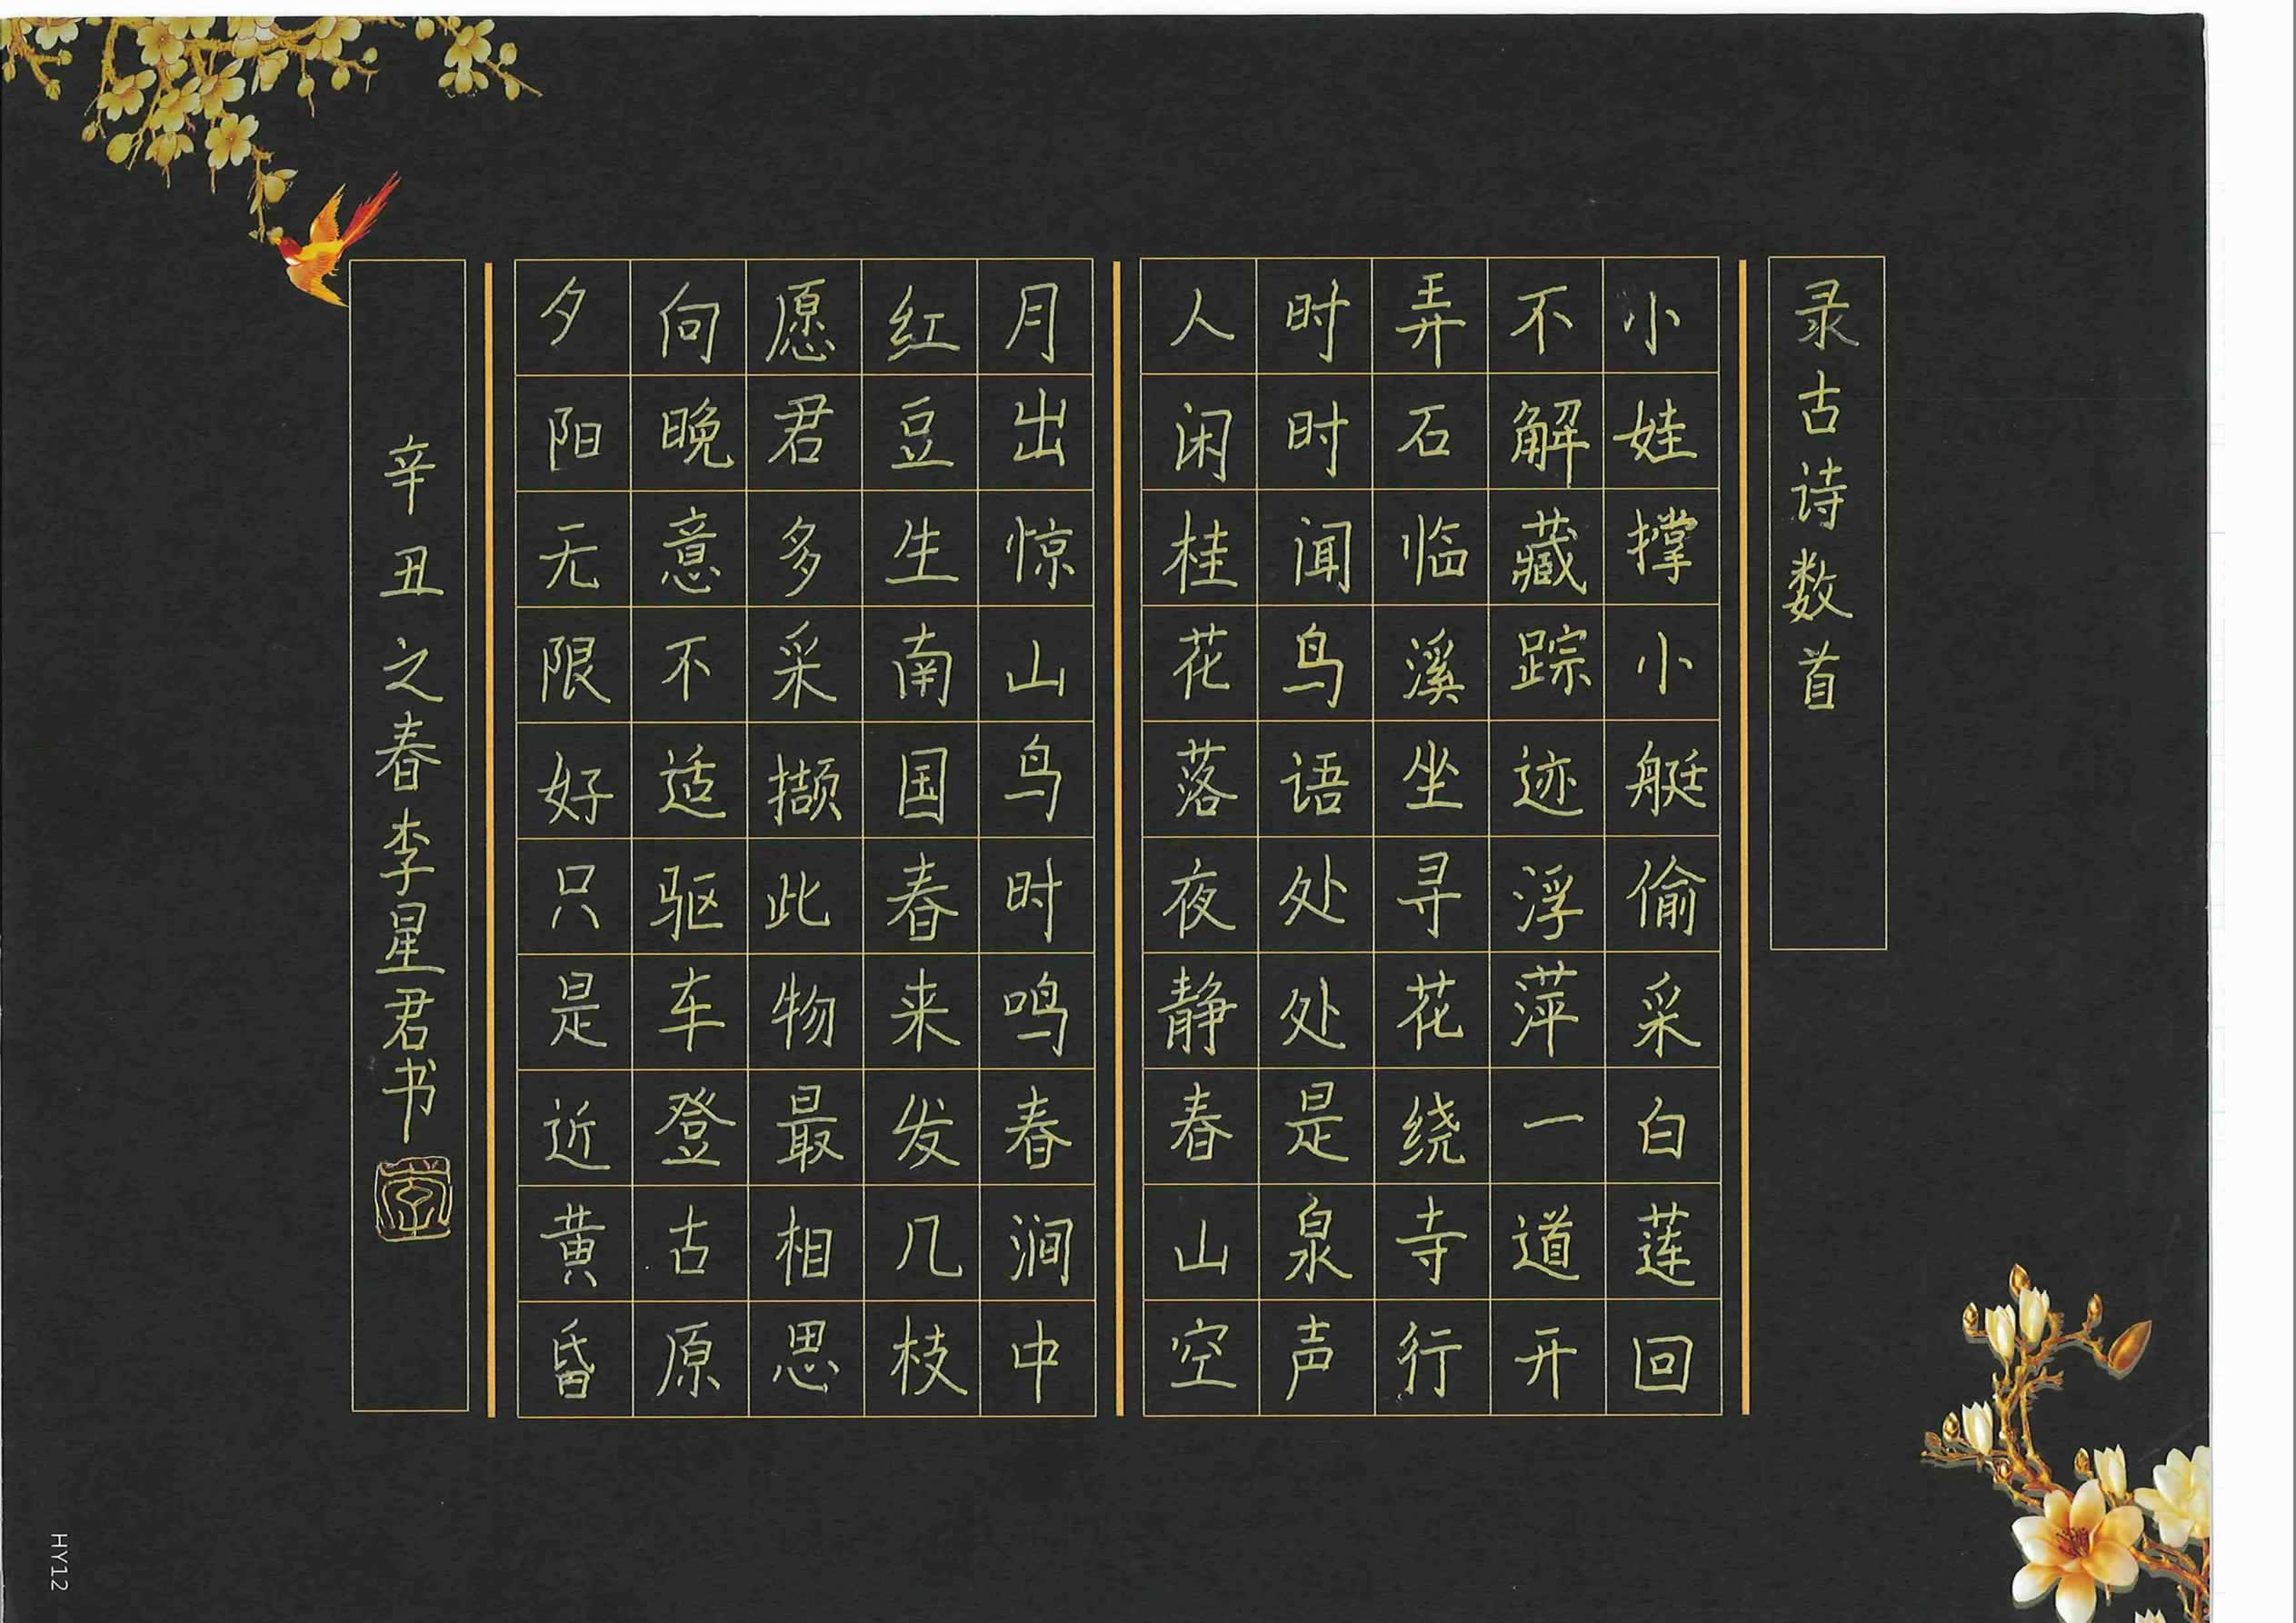 录古诗数首
小娃撑小艇偷采白莲回
不解藏踪迹浮萍一道开
弄石临溪坐寻花绕寺行
时时闻鸟语处处是泉声
人闲桂花落夜静春山空
月出惊山鸟时鸣春涧中
红豆生南国春来发几枝
愿君多采撷此物最相思
向晚意不适驱车登古原
夕阳无限好只是近黄昏
辛丑之春李星君书
HY12